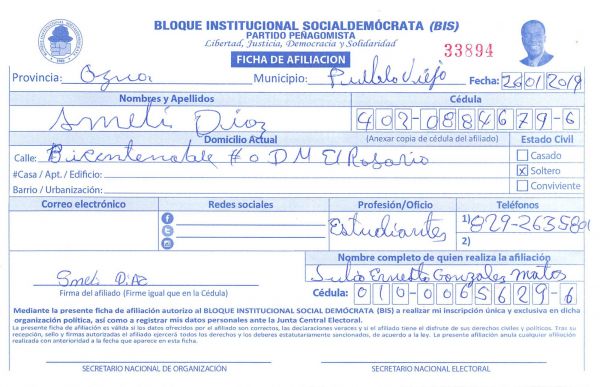 BLOQUE INSTITUCIONAL SOCIALDEMÓCRATA (BIS)
PARTIDO PEÑAGOMISTA
Libertad, Justicia, Democracia y Solidaridad
33894
FICHA DE AFILIACION
Provincia: Ozoa Municipio: Pueblo Viejo Fecha: 26/01/2019
Nombres y Apellidos Cédula
Smeli Diaz 402-0884679-6
Domicilio Actual (Anexar copia de cédula del afiliado) Estado Civil
Calle: #0 D M El Rosario Casado
#Casa / Apt. / Edificio: X Soltero
Barrio / Urbanización: Conviviente
Correo electrónico Redes sociales Profesión/Oficio Teléfonos
Estudiantes 1) 829-2635801
2)
Nombre completo de quien realiza la afiliación
Smeli DiAZ Julio Ernesto Gonzalez Matos
Firma del afiliado (Firme igual que en la Cédula) Cédula: 010-0065629-6
Mediante la presente ficha de afiliación autorizo al BLOQUE INSTITUCIONAL SOCIAL DEMÓCRATA (BIS) a realizar mi inscripción única y exclusiva en dicha
organización política, así como a registrar mis datos personales ante la Junta Central Electoral.
La presente ficha de afiliación es válida si los datos ofrecidos por el afiliado son correctos, las declaraciones veraces y si el afiliado tiene el disfrute de sus derechos civiles y políticos. Tras su
recepción, sello y firmas autorizadas el afiliado ejercerá todos los derechos y los deberes estatutariamente sancionados, de acuerdo a la ley. La presente afiliación anula cualquier afiliación
realizada con anterioridad a la fecha que aparece en esta ficha.
SECRETARIO NACIONAL DE ORGANIZACIÓN SECRETARIO NACIONAL ELECTORAL